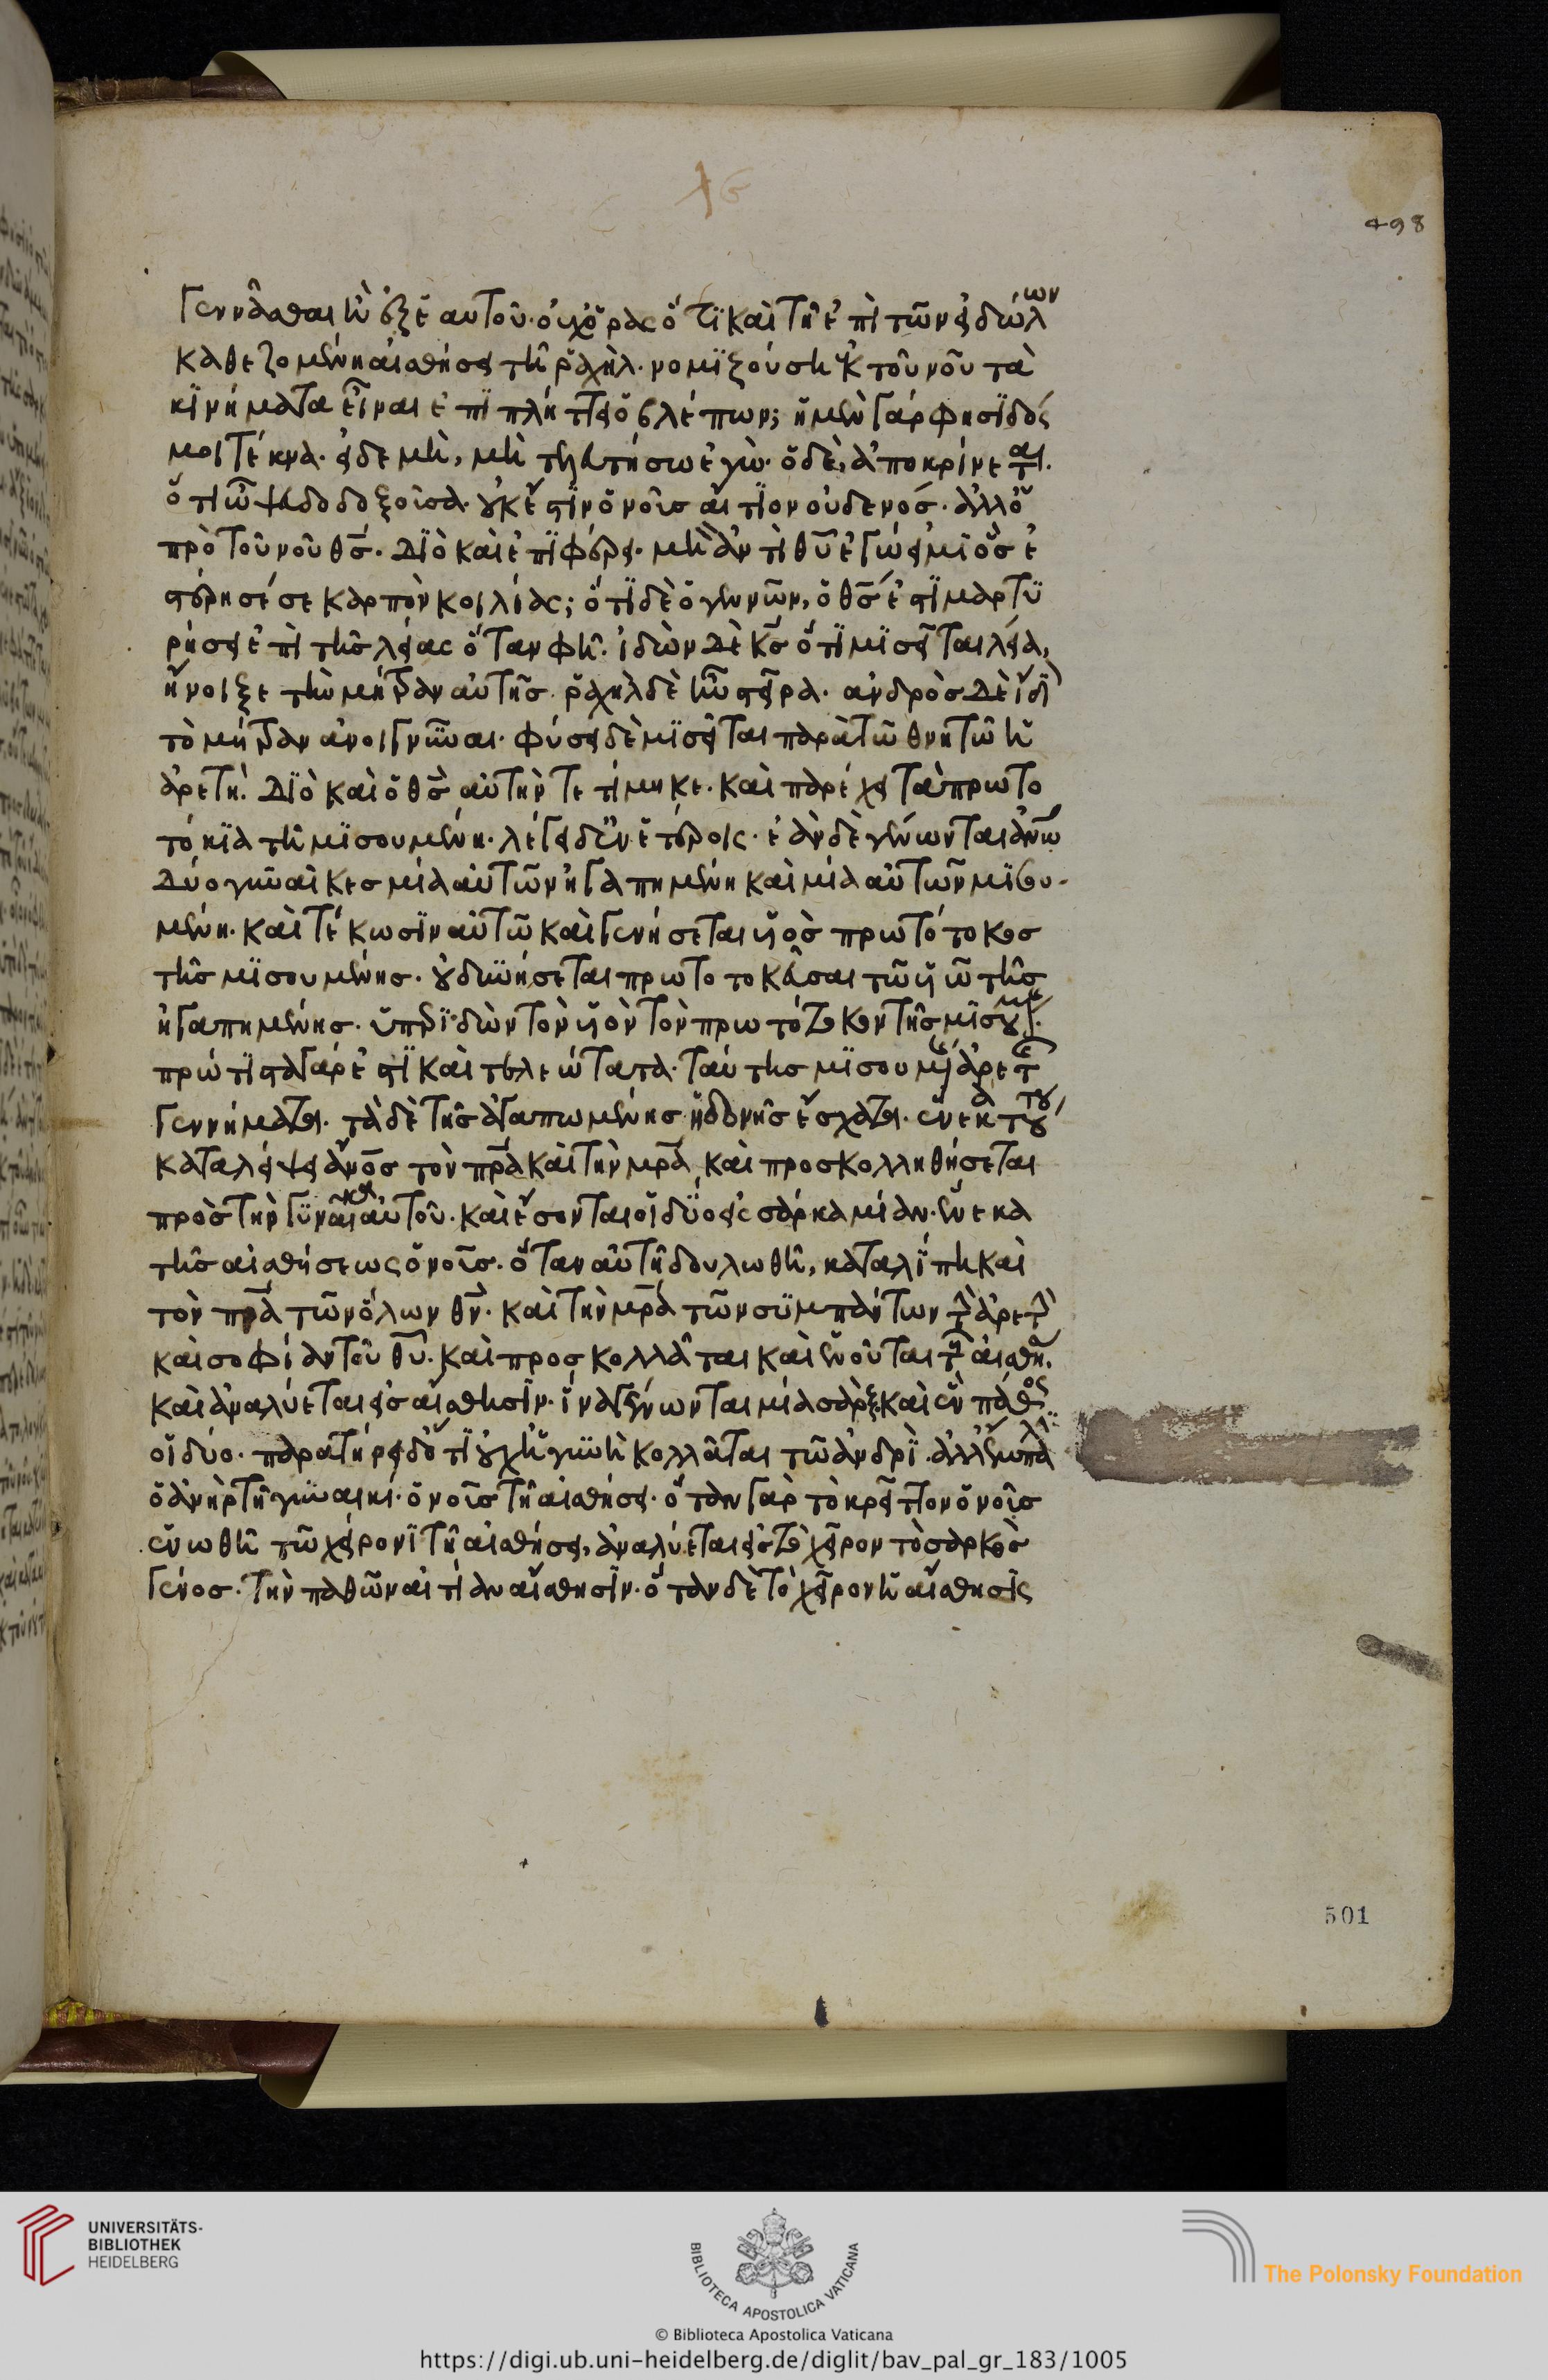 γεννᾶσθαι ἢ ἐξ ἑαυτοῦ· οὐχ ὁρᾶς ὅτϊ καὶ τῇ ἐπὶ τῶν εἰδώλων
καθεζομένη αἰσθήσει τῇ ῥαχήλ· νομϊζούση ἐκ τοῦ νοῦ τὰ
κϊνήματα εἶναι ἐπϊπλήττει ὁ βλέπων; ἡ μὲν γάρ φησϊ δός
μοι τέκνα· εἰ δὲ μὴ, μὴ τελευτήσω ἐγώ· ὁ δὲ, ἀποκρίνεται.
ὅτι ὦ ψευδοδοξοῦσα· οὐκ ἔστϊν ὁ νοῦς αἴτϊον οὐδενός· ἀλλ' ὁ
πρὸ τοῦ νοῦ θς̅· Δϊὸ καὶ ἐπϊφέρει· μὴ ἀντὶ θυ̅ ἐγώ εἰμϊ ὃς ἐ
στέρησέ σε καρπὸν κοιλίας; ὅτϊ δὲ ὁ γεννῶν, ὁ θς̅ ἐστϊ μαρτϋ
ρήσει ἐπὶ τῆς λείας ὅταν φῆ· ἰδὼν Δὲ κς̅ ὅτϊ μϊσεῖται λεία,
ἤνοιξε τὴν μήτραν αὐτῆς· ῥαχὴλ δὲ ἦν στεῖρα· ἀνδρὸς Δὲ ἴδϊ
τὸ μήτραν ἀνοιγνῦναι· φύσει δὲ μϊσεῖται παρὰ τῶ θνητῶ ἡ
ἀρετή· Δϊὸ καὶ ὁ θς̅ αὐτὴν τετίμηκε· καὶ παρέχει τὰ πρωτο
τόκϊα τῇ μϊσουμένη· λέγει δ' ἐν ἑτέροις· ἐὰν δὲ γένωνται ἀνῶ
Δύο γυναῖκες μία αὐτῶν ἠγαπημένη καὶ μία αὐτῶν μϊσου-
μένη· καὶ τέκωσϊν αὐτῶ καὶ γενήσεται υἱὸς πρωτότοκος
τῆς μϊσουμένης· οὐ δυνήσεται πρωτοτοκεῦσαι τῶ υἱῶ τῆς
ἠγαπημένης· ὑπερϊδὼν τὸν υἱὸν τὸν πρωτότοκον τῆς μϊσουμ.
πρώτϊστα γάρ ἐστϊ καὶ τελεώτατα· τὰ τῆς μϊσουμ ἀρετ
γεννήματα· τὰ δὲ τῆς ἀγαπωμένης ἡδονῆς ἔσχατα· ἕνεκα τούτου
καταλείψει ἄνος̅ τὸν πρ̅α καὶ τὴν μρ̅α, καὶ προσκολληθήσεται
πρὸς τὴν γϋναῖκα αὐτοῦ· καὶ ἔσονται οἱ δύο εἰς σάρκα μίαν· ἕνεκα
τῆς αἰσθήσεως ὁ νοῦς· ὅταν αὐτῇ δουλωθῆ, καταλίπη καὶ
τὸν πρ̅α τῶν ὅλων θν̅· καὶ τὴν μρ̅α τῶν συμπάντων τὴν ἀρετὴν
καὶ σοφίαν τοῦ θυ̅· καὶ προσκολλᾶται καὶ ἑνοῦται τῆ αἰσθή.
καὶ ἀναλύεται εἰς αἴσθησϊν· ἵνα γένωνται μία σὰρξ καὶ ἓν πάθος
οἱ δύο· παρατήρει δ' ὅτϊ οὐχ ἡ γυνὴ κολλᾶται τῶ ἀνδρϊ· ἀλλ' ἔμπαλϊ
ὁ ἀνὴρ τῇ γυναικί· ὁ νοῦς τῇ αἰσθήσει· ὅταν γὰρ τὸ κρεῖττον ὁ νοῦς
ἑνωθῆ τῶ χείρονϊ τῇ αἰσθήσει, ἀναλύεται εἰς τὸ χεῖρον τὸ σαρκὸς
γένος· τὴν παθῶν αἰτίαν αἴσθησϊν· ὅταν δὲ τὸ χεῖρον ἡ αἴσθησϊς
498
501
UNIVERSITÄTS-
BIBLIOTHEK
HEIDELBERG
BIBLIOTECA APOSTOLICA VATICANA
The Polonsky Foundation
© Biblioteca Apostolica Vaticana
https://digi.ub.uni-heidelberg.de/diglit/bav_pal_gr_183/1005